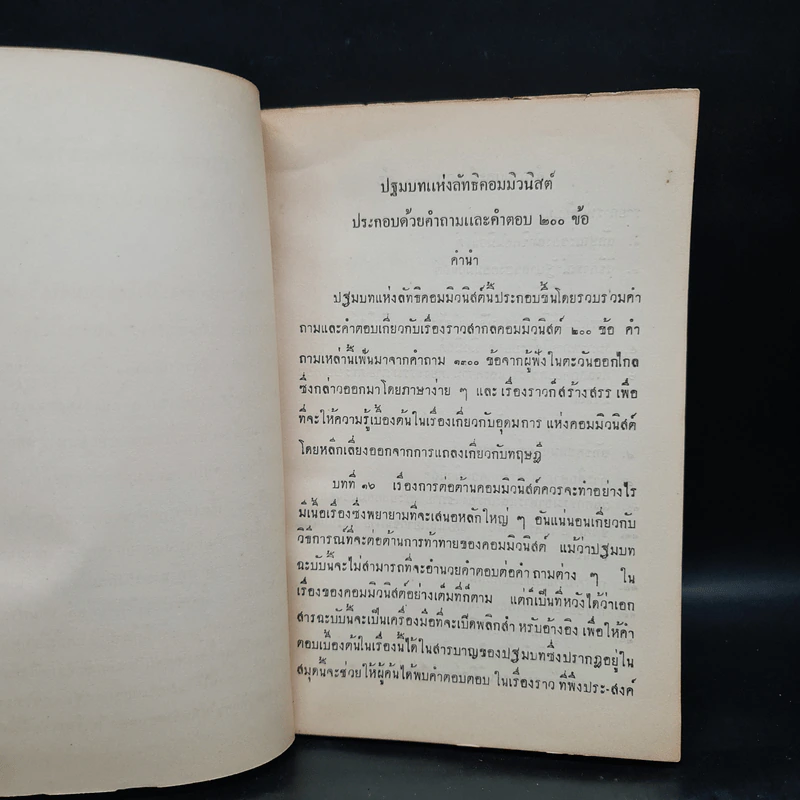 ปฐมบทแห่งลัทธิคอมมิวนิสต์
ประกอบด้วยคำถามและคำตอบ ๒๐๐ ข้อ
คำนำ
ปฐมบทแห่งลัทธิคอมมิวนิสต์นี้ประกอบขึ้นโดยรวบรวมคำ
ถามและคำตอบเกี่ยวกับเรื่องราวสากลคอมมิวนิสต์ ๒๐๐ ข้อ คำ
ถามเหล่านี้เฟ้นมาจากคำถาม ๑๔๐๐ ข้อจากผู้ฟังในตะวันออกไกล
ซึ่งกล่าวออกมาโดยภาษาง่าย ๆ และ เรื่องราวก็สร้างสรร เพื่อ
ที่จะให้ความรู้เบื้องต้นในเรื่องเกี่ยวกับอุดมการ แห่งคอมมิวนิสต์
โดยหลีกเลี่ยงออกจากการแถลงเกี่ยวกับทฤษฎี
บทที่ ๑๖ เรื่องการต่อต้านคอมมิวนิสต์ควรจะทำอย่างไร
มีเนื้อเรื่องซึ่งพยายามที่จะเสนอหลักใหญ่ ๆ อันแน่นอนเกี่ยวกับ
วิธีการณ์ที่จะต่อต้านการท้าทายของคอมมิวนิสต์ แม้ว่าปฐมบท
ฉะบับนี้จะไม่สามารถที่จะอำนวยคำตอบต่อคำถามต่าง ๆ ใน
เรื่องของคอมมิวนิสต์อย่างเต็มที่ก็ตาม แต่ก็เป็นที่หวังได้ว่าเอก
สารฉะบับนี้จะเป็นเครื่องมือที่จะเปิดพลิกสำหรับอ้างอิง เพื่อให้คำ
ตอบเบื้องต้นในเรื่องนี้ได้ในสารบาญของปฐมบทซึ่งปรากฏอยู่ใน
สมุดนี้จะช่วยให้ผู้ค้นได้พบคำตอบตอบ ในเรื่องราว ที่พึงประ-สงค์